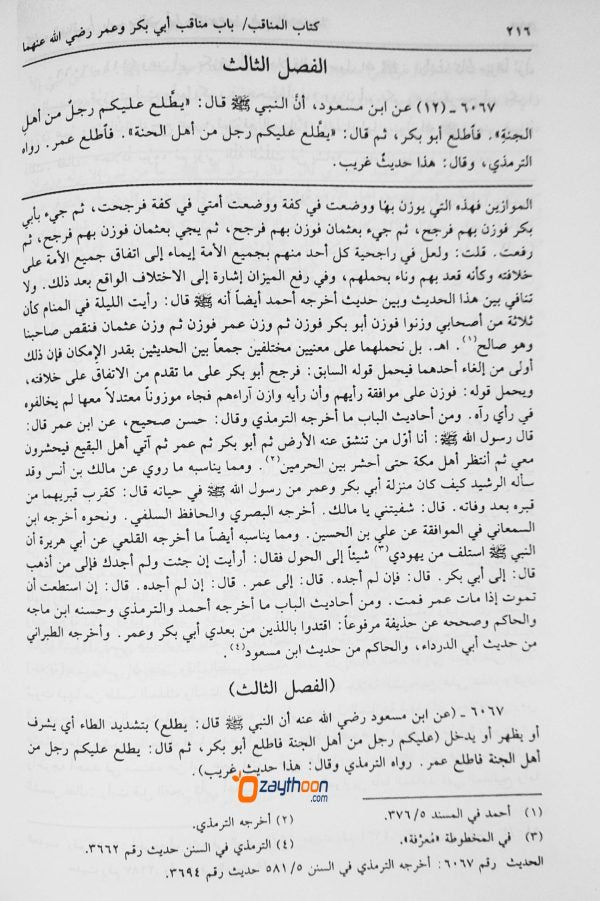 ٢١٦
كتاب المناقب/ باب مناقب أبي بكر وعمر رضي الله عنهما
الفصل الثالث
٦٠٦٧ ـ (١٢) عن ابن مسعود، أنَّ النبي ﷺ قال: «يطَّلع عليكم رجلٌ من أهلِ
الجنةِ». فأطلع أبو بكر، ثم قال: «يطَّلع عليكم رجل من أهل الجنة». فأطلع عمر. رواه
الترمذي، وقال: هذا حديثٌ غريب.
الموازين فهذه التي يوزن بها ووضعت في كفة ووضعت أمتي في كفة فرجحت، ثم جيء بأبي
بكر فوزن بهم فرجح، ثم جيء بعثمان فوزن بهم فرجح، ثم يجي بعثمان فوزن بهم فرجح، ثم
رفعت. قلت: ولعل في راجحية كل أحد منهم بجميع الأمة إيماء إلى اتفاق جميع الأمة على
خلافته وكأنه قعد بهم وناء بحملهم، وفي رفع الميزان إشارة إلى الاختلاف الواقع بعد ذلك. ولا
تنافي بين هذا الحديث وبين حديث أخرجه أحمد أيضاً أنه ﷺ قال: رأيت الليلة في المنام كأن
ثلاثة من أصحابي وزنوا فوزن أبو بكر فوزن ثم وزن عمر فوزن ثم وزن عثمان فنقص صاحبنا
وهو صالح(١). اهـ. بل نحملهما على معنيين مختلفين جمعاً بين الحديثين بقدر الإمكان فإن ذلك
أولى من إلغاء أحدهما فيحمل قوله السابق: فرجح أبو بكر على ما تقدم من الاتفاق على خلافته،
ويحمل قوله: فوزن على موافقة رأيهم وأن رأيه وازن آراءهم فجاء موزوناً معتدلاً معها لم يخالفوه
في رأي رآه. ومن أحاديث الباب ما أخرجه الترمذي وقال: حسن صحيح، عن ابن عمر قال:
قال رسول الله ﷺ: أنا أوّل من تنشق عنه الأرض ثم أبو بكر ثم عمر ثم آتي أهل البقيع فيحشرون
معي ثم أنتظر أهل مكة حتى أحشر بين الحرمين(٢). ومما يناسبه ما روي عن مالك بن أنس وقد
سأله الرشيد كيف كان منزلة أبي بكر وعمر من رسول الله ﷺ في حياته قال: كقرب قبريهما من
قبره بعد وفاته. قال: شفيتني يا مالك. أخرجه البصري والحافظ السلفي. ونحوه أخرجه ابن
السمعاني في الموافقة عن علي بن الحسين. ومما يناسبه أيضاً ما أخرجه القلعي عن أبي هريرة أن
النبي ﷺ استلف من يهودي(٣) شيئاً إلى الحول فقال: أرأيت إن جئت ولم أجدك فإلى من أذهب
قال: إلى أبي بكر. قال: فإن لم أجده. قال: إلى عمر. قال: إن لم أجده. قال: إن استطعت أن
تموت إذا مات عمر فمت. ومن أحاديث الباب ما أخرجه أحمد والترمذي وحسنه ابن ماجه
والحاكم وصححه عن حذيفة مرفوعاً: اقتدوا باللذين من بعدي أبي بكر وعمر. وأخرجه الطبراني
من حديث أبي الدرداء، والحاكم من حديث ابن مسعود(٤)
(الفصل الثالث)
٦٠٦٧ ـ (عن ابن مسعود رضي الله عنه أن النبي ﷺ قال: يطلع) بتشديد الطاء أي يشرف
أو يظهر أو يدخل (عليكم رجل من أهل الجنة فاطلع أبو بكر، ثم قال: يطلع عليكم رجل من
أهل الجنة فاطلع عمر. رواه الترمذي وقال: هذا حديث غريب).
Ozaythoon
.com
(١) أحمد في المسند ٣٧٦/٥.
(٢) أخرجه الترمذي.
(٣) في المخطوطة «مُعرَّفة».
(٤) الترمذي في السنن حديث رقم ٣٦٦٢.
الحديث رقم ٦٠٦٧: أخرجه الترمذي في السنن ٥٨١/٥ حديث رقم ٣٦٩٤.